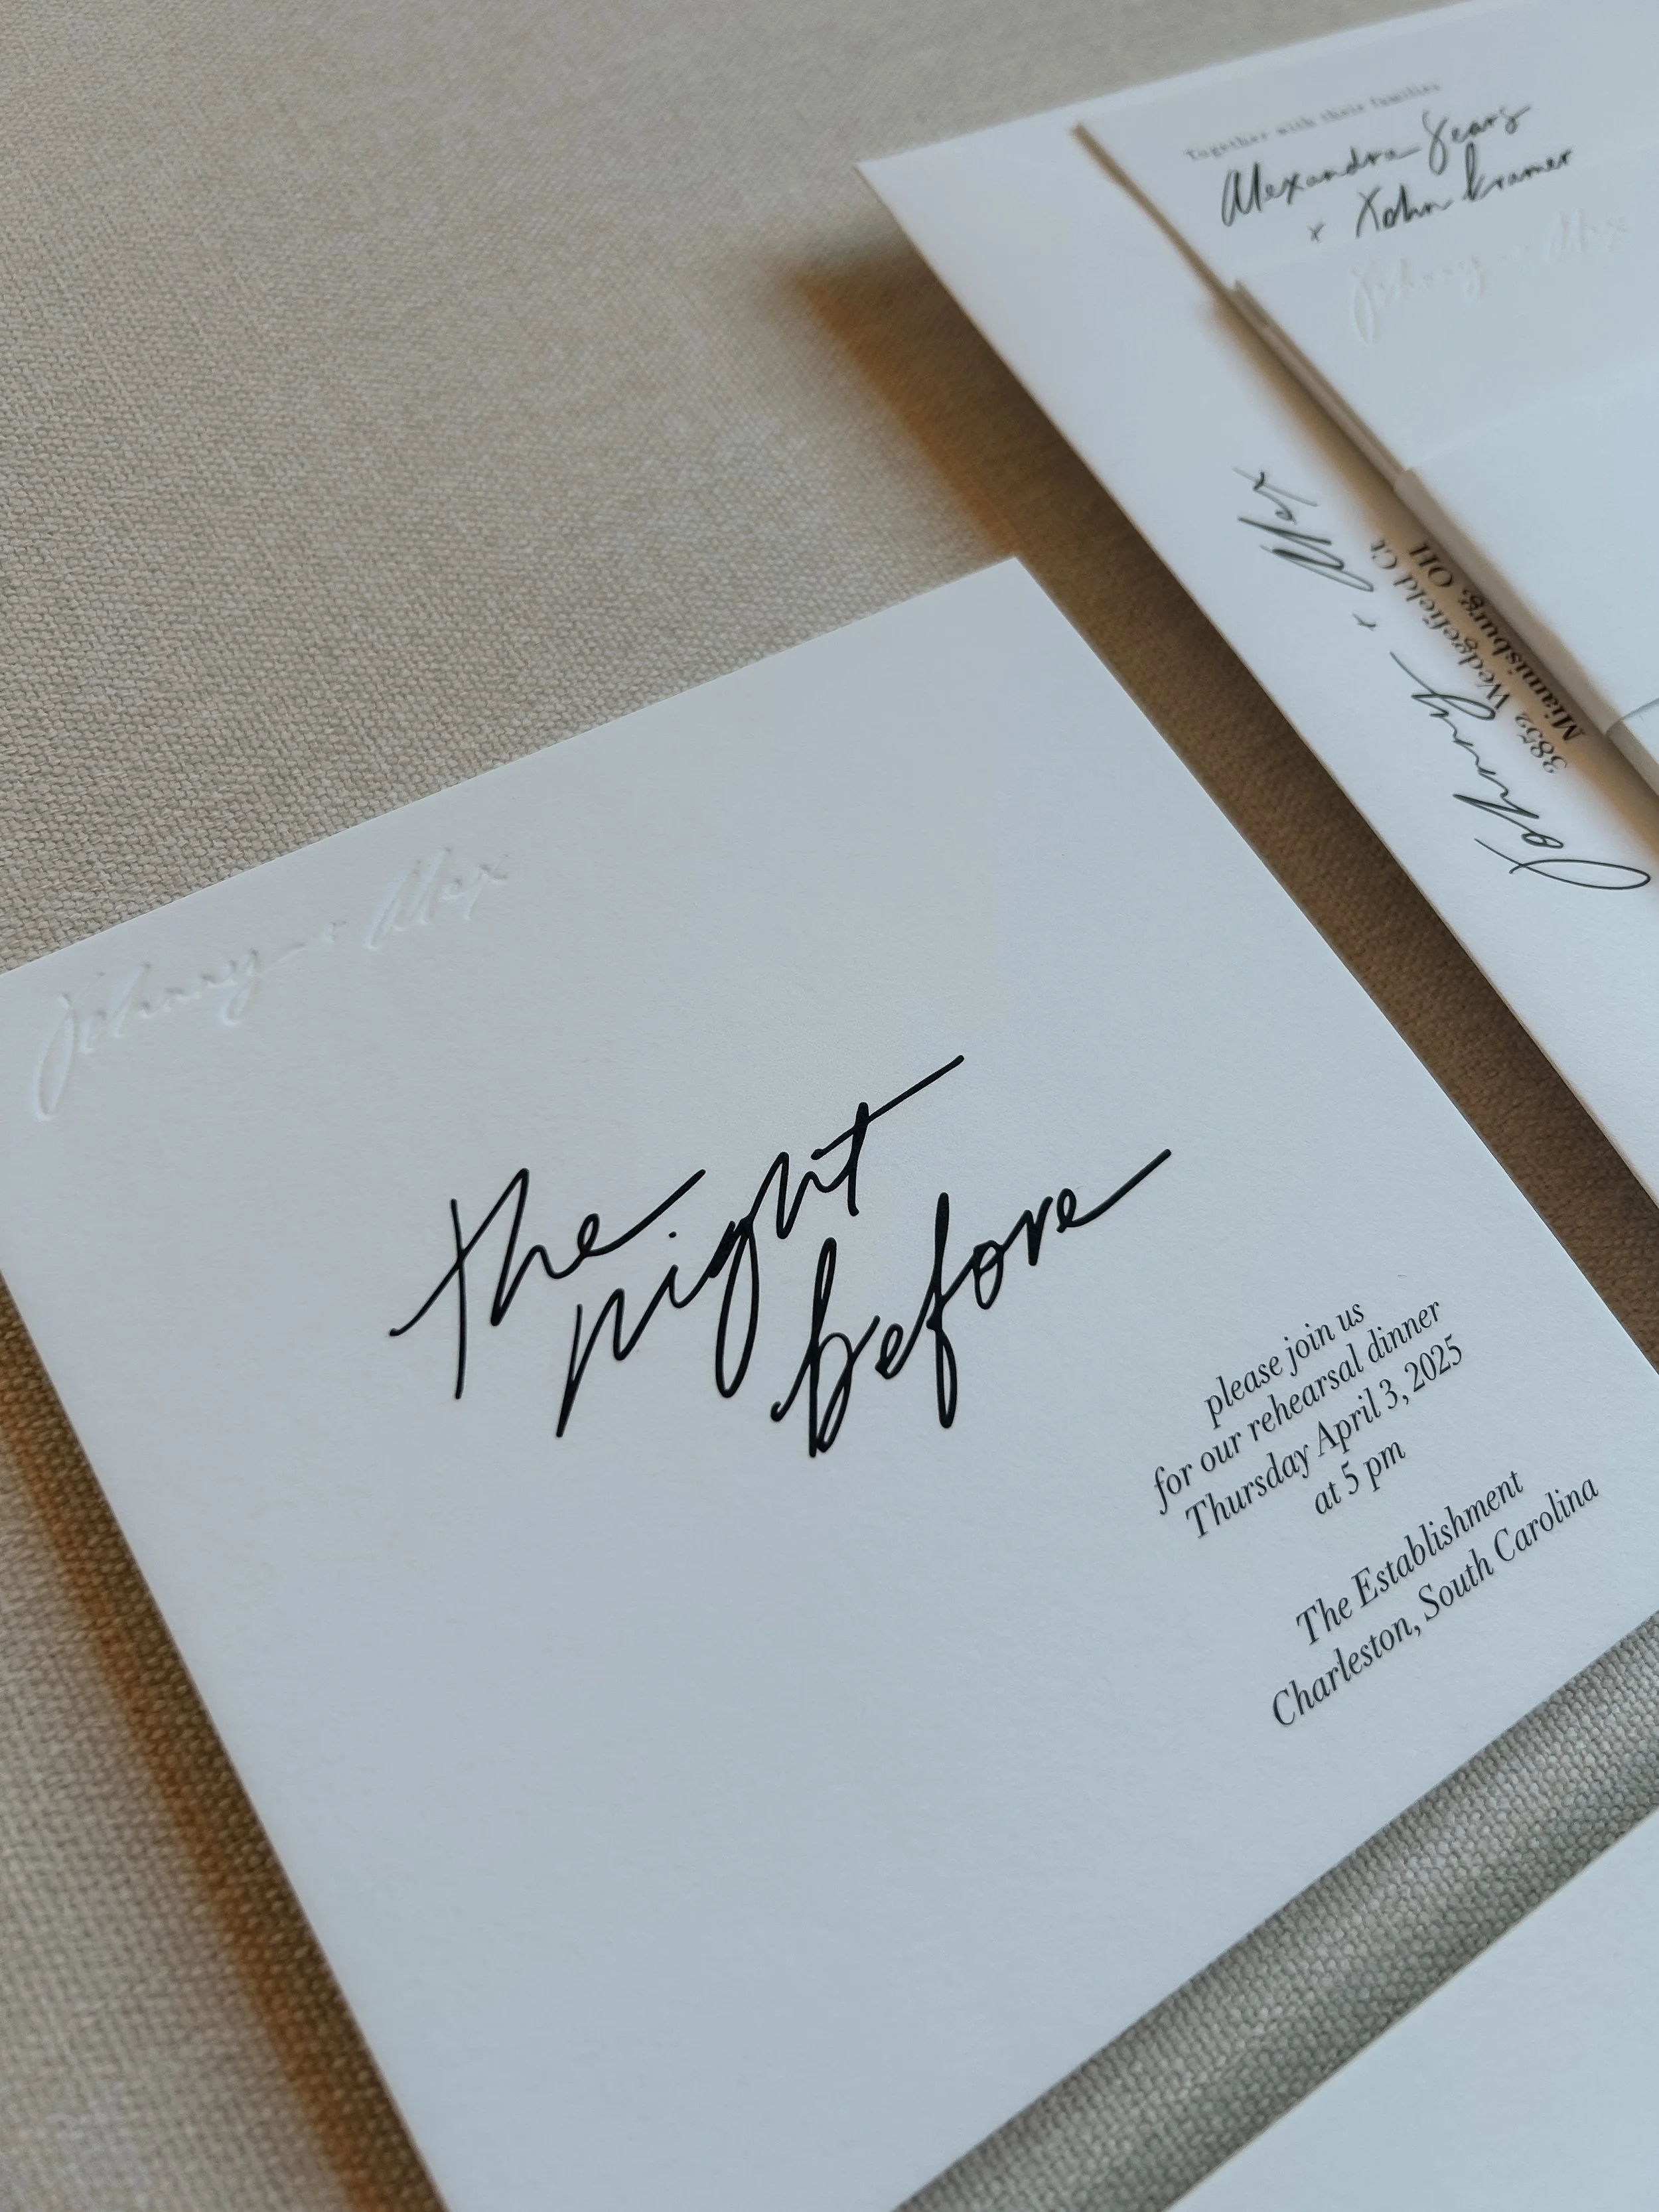 Together with their families
Alexandra Sears
x John Kramer
Johnny + Alex
Johnny + Alex
3852 Wedgefield Ct
Miamisburg, OH
Johnny + Alex
the
night
before
please join us
for our rehearsal dinner
Thursday April 3, 2025
at 5 pm
The Establishment
Charleston, South Carolina